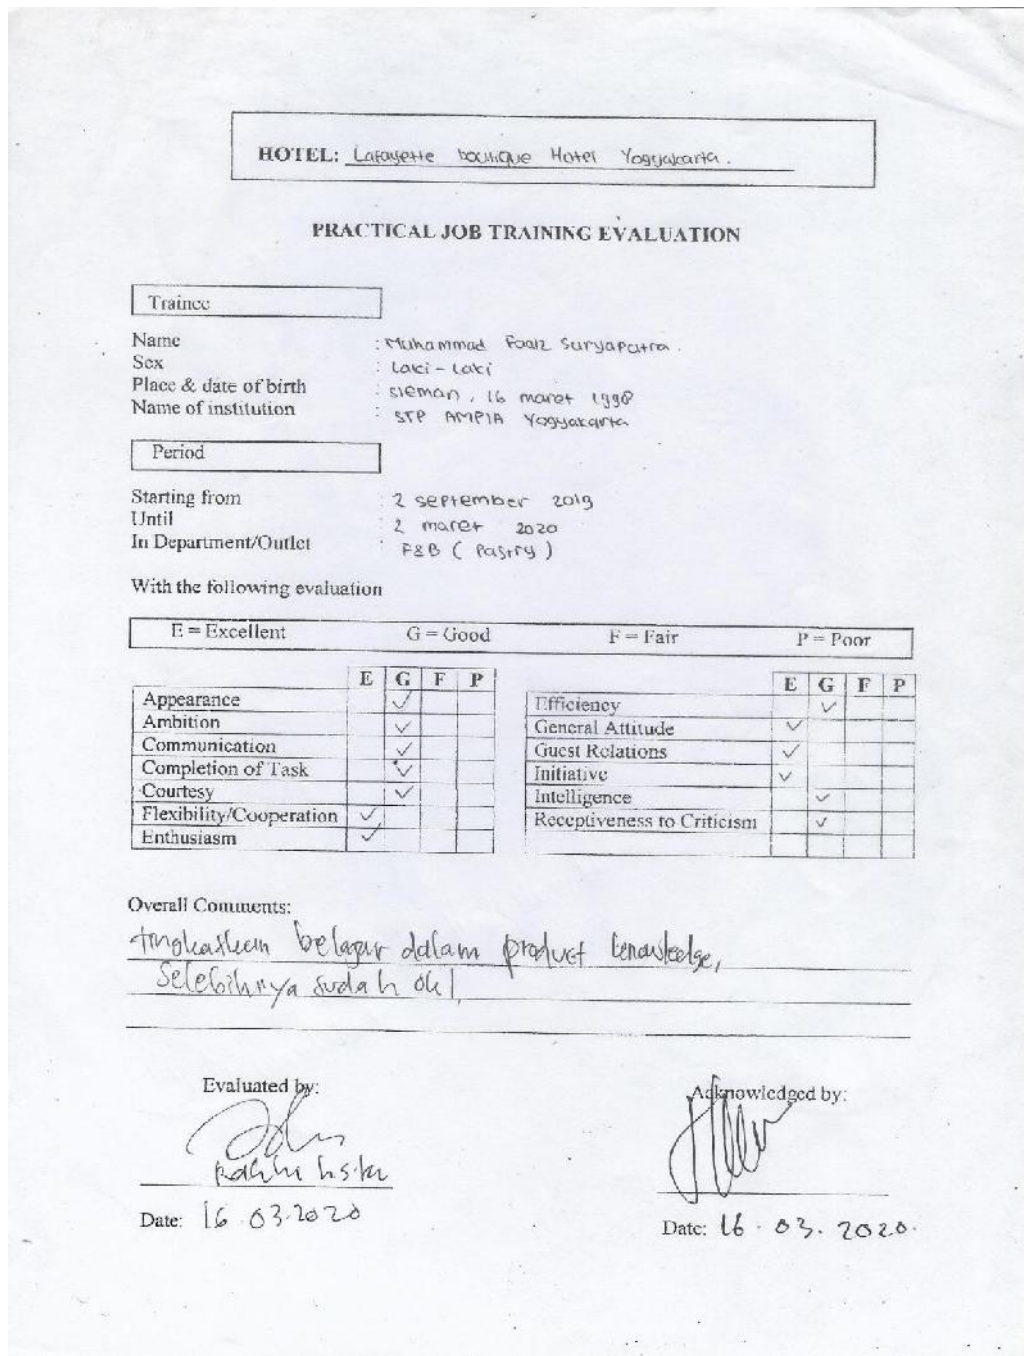 HOTEL: Lafayette boutique Hotel Yogyakarta.
PRACTICAL JOB TRAINING EVALUATION
Trainee
Name : Muhammad Faaiz Suryaputra.
Sex : Laki - Laki
Place & date of birth : Sleman, 16 maret 1998
Name of institution : STP AMPTA Yogyakarta
Period
Starting from : 2 september 2019
Until : 2 maret 2020
In Department/Outlet : F&B ( Pastry )
With the following evaluation
E = Excellent G = Good F = Fair P = Poor
E G F P
Appearance ✓
Ambition ✓
Communication ✓
Completion of Task ✓
Courtesy ✓
Flexibility/Cooperation ✓
Enthusiasm ✓
E G F P
Efficiency ✓
General Attitude ✓
Guest Relations ✓
Initiative ✓
Intelligence ✓
Receptiveness to Criticism ✓
Overall Comments:
tingkatkan belajar dalam product knowledge,
Selebihnya sudah ok!
Evaluated by:
Date: 16.03.2020
Acknowledged by:
Date: 16.03.2020.